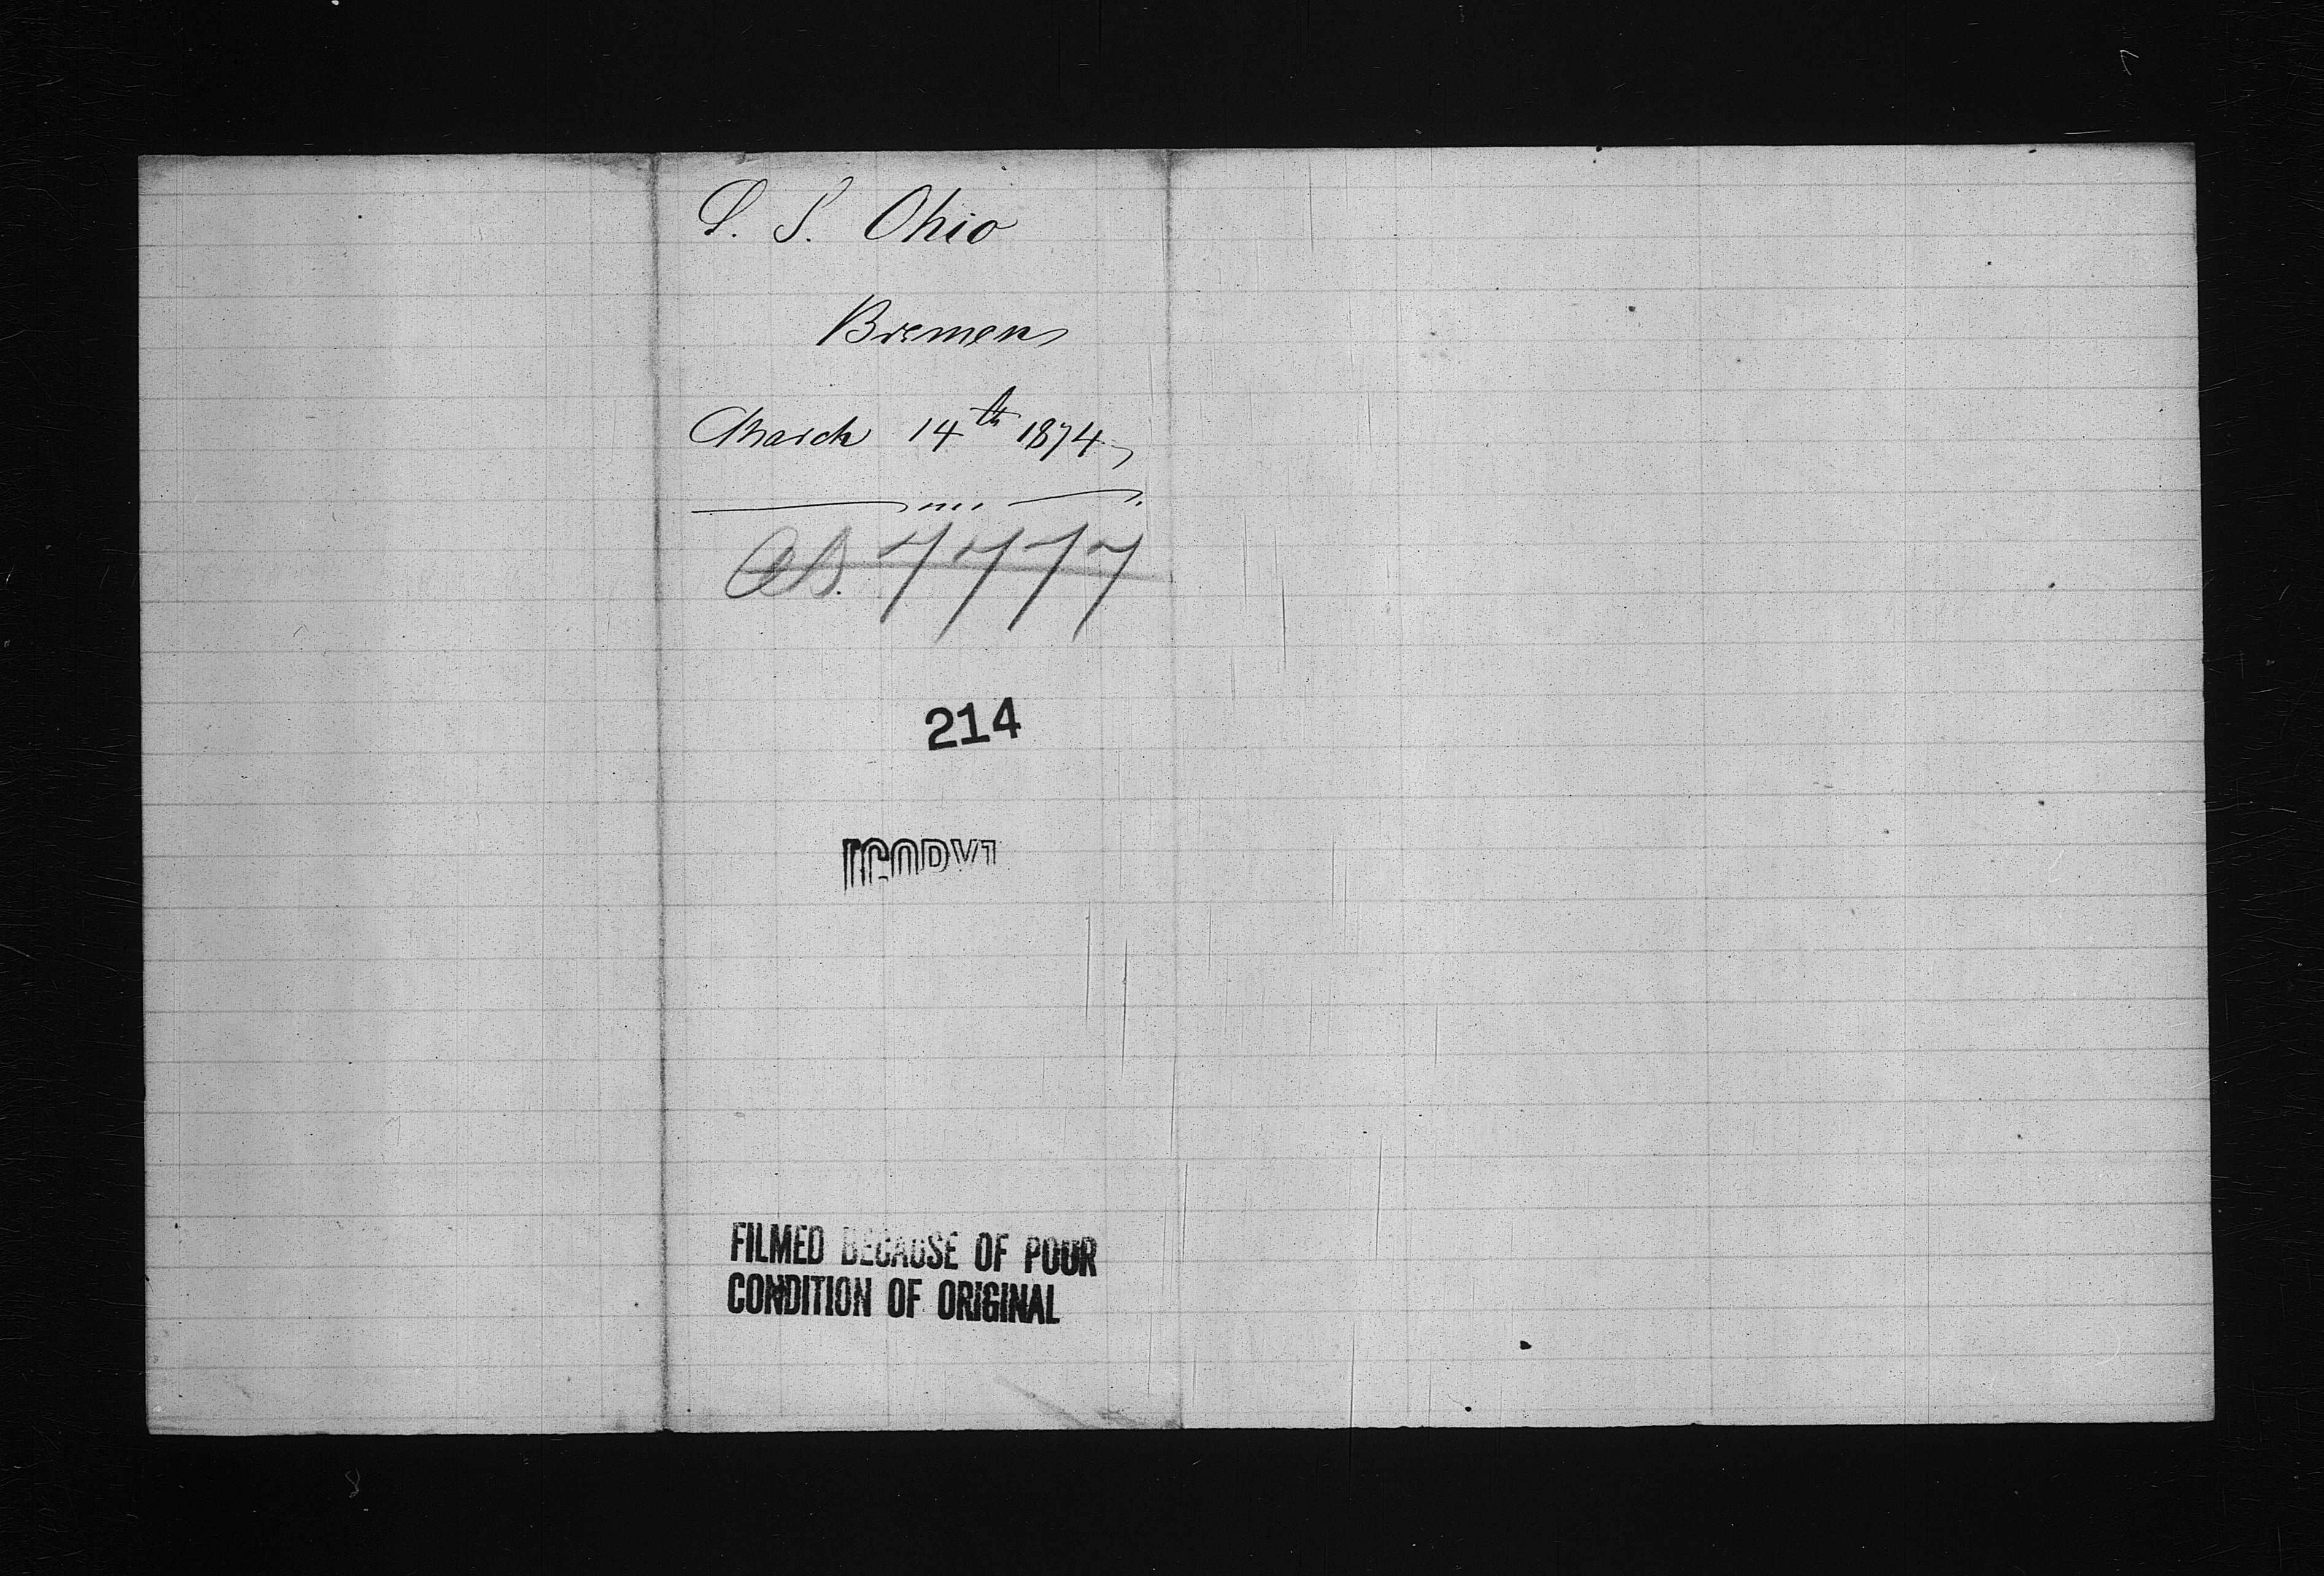 S. S. Ohio
Bremen
March 14th 1874
7777
214
[COPY]
FILMED BECAUSE OF POOR
CONDITION OF ORIGINAL